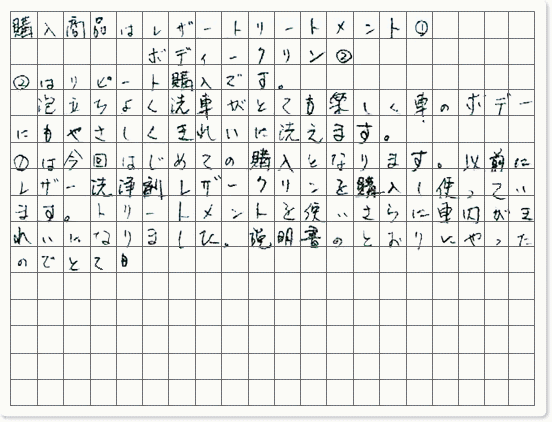 購入商品はレザートリートメント①
ボディークリン②
②はリピート購入です。
泡立ちよく洗車がとても楽しく車のボデー
にもやさしくきれいに洗えます。
①は今回はじめての購入となります。以前に
レザー洗浄剤レザークリンを購入し使ってい
ます。トリートメントを使いさらに車内がき
れいになりました。説明書のとおりにやった
のでとても